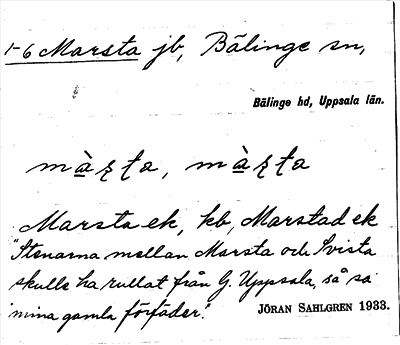 1-6 Marsta jb, Bälinge sn,
Bälinge hd, Uppsala län.
màʂʈa, màʂʈa
Marsta ek, kb, Marstad ek
"Stenarna mellan Marsta och Svista
skulle ha rullat från G. Uppsala, så sa
mina gamla förfäder".
JÖRAN SAHLGREN 1933.